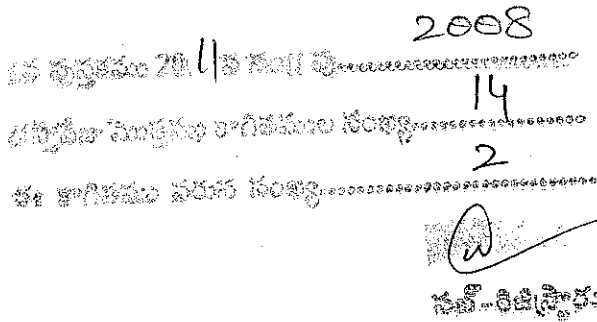 2008
1వ పుస్తకము 2011వ సం|| పు....................
14
దస్తావేజు మొత్తము కాగితముల సంఖ్య....................
2
ఈ కాగితము వరుస సంఖ్య....................
సబ్-రిజిస్ట్రారు